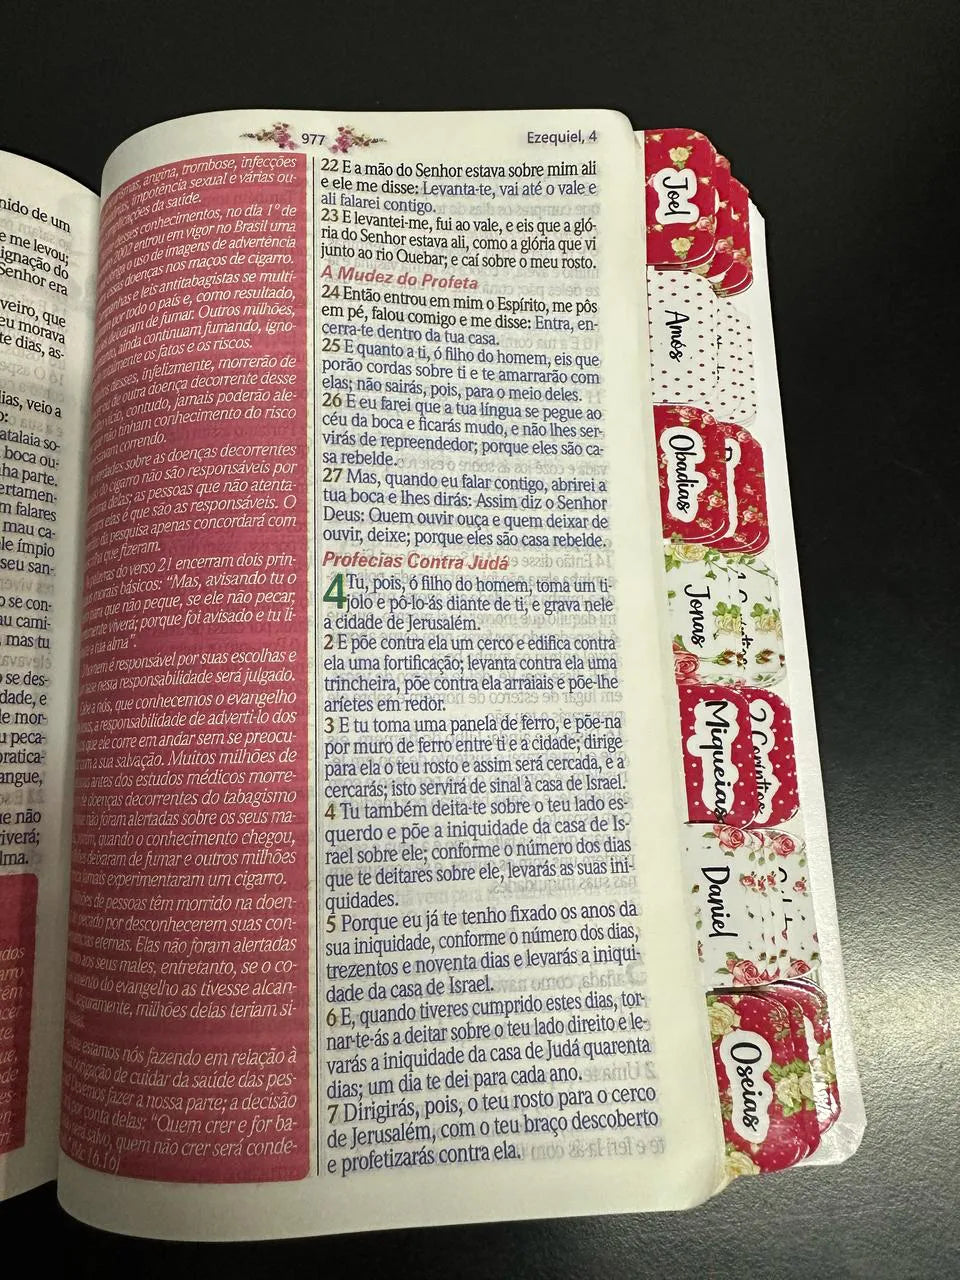 977
Ezequiel, 4
nido de um
e me levou;
ignação do
Senhor era
veiro, que
eu morava
te dias, as-
ias, veio a
atalaia so-
boca ou-
ha parte.
ertamen-
m falares
mau ca-
le ímpio
seu san-
o se con-
au cami-
mas tu
o se des-
dade, e
le mor-
u peca-
pratica-
angue,
ue não
viverá;
lma.
angina, trombose, infecções
impotência sexual e várias ou-
da saúde.
desses conhecimentos, no dia 1º de
2002 entrou em vigor no Brasil uma
o uso de imagens de advertência
doenças nos maços de cigarro.
e leis antitabagistas se multi-
por todo o país e, como resultado,
deixaram de fumar. Outros milhões,
ainda continuam fumando, igno-
os fatos e os riscos.
desses, infelizmente, morrerão de
outra doença decorrente desse
contudo, jamais poderão ale-
não tinham conhecimento do risco
correndo.
sobre as doenças decorrentes
do cigarro não são responsáveis por
delas; as pessoas que não atenta-
elas é que são as responsáveis. O
da pesquisa apenas concordará com
que fizeram.
do verso 21 encerram dois prin-
básicos: “Mas, avisando tu o
para que não peque, se ele não pecar,
viverá; porque foi avisado e tu li-
a tua alma”.
homem é responsável por suas escolhas e
nesta responsabilidade será julgado.
a nós, que conhecemos o evangelho
a responsabilidade de adverti-lo dos
que ele corre em andar sem se preocu-
com a sua salvação. Muitos milhões de
antes dos estudos médicos morre-
doenças decorrentes do tabagismo
não foram alertadas sobre os seus ma-
quando o conhecimento chegou,
deixaram de fumar e outros milhões
jamais experimentaram um cigarro.
de pessoas têm morrido na doen-
pecado por desconhecerem suas con-
eternas. Elas não foram alertadas
aos seus males, entretanto, se o co-
do evangelho as tivesse alcan-
seguramente, milhões delas teriam si-
estamos nós fazendo em relação à
de cuidar da saúde das pes-
Devemos fazer a nossa parte; a decisão
por conta delas: “Quem crer e for ba-
salvo, quem não crer será conde-
16.16)
22 E a mão do Senhor estava sobre mim ali
e ele me disse: Levanta-te, vai até o vale e
ali falarei contigo.
23 E levantei-me, fui ao vale, e eis que a gló-
ria do Senhor estava ali, como a glória que vi
junto ao rio Quebar; e caí sobre o meu rosto.
A Mudez do Profeta
24 Então entrou em mim o Espírito, me pôs
em pé, falou comigo e me disse: Entra, en-
cerra-te dentro da tua casa.
25 E quanto a ti, ó filho do homem, eis que
porão cordas sobre ti e te amarrarão com
elas; não sairás, pois, para o meio deles.
26 E eu farei que a tua língua se pegue ao
céu da boca e ficarás mudo, e não lhes ser-
virás de repreendedor; porque eles são ca-
sa rebelde.
27 Mas, quando eu falar contigo, abrirei a
tua boca e lhes dirás: Assim diz o Senhor
Deus: Quem ouvir ouça e quem deixar de
ouvir, deixe; porque eles são casa rebelde.
Profecias Contra Judá
4 Tu, pois, ó filho do homem, toma um ti-
jolo e pô-lo-ás diante de ti, e grava nele
a cidade de Jerusalém.
2 E põe contra ela um cerco e edifica contra
ela uma fortificação; levanta contra ela uma
trincheira, põe contra ela arraiais e põe-lhe
aríetes em redor.
3 E tu toma uma panela de ferro, e põe-na
por muro de ferro entre ti e a cidade; dirige
para ela o teu rosto e assim será cercada, e a
cercarás; isto servirá de sinal à casa de Israel.
4 Tu também deita-te sobre o teu lado es-
querdo e põe a iniquidade da casa de Is-
rael sobre ele; conforme o número dos dias
que te deitares sobre ele, levarás as suas ini-
quidades.
5 Porque eu já te tenho fixado os anos da
sua iniquidade, conforme o número dos dias,
trezentos e noventa dias e levarás a iniqui-
dade da casa de Israel.
6 E, quando tiveres cumprido estes dias, tor-
nar-te-ás a deitar sobre o teu lado direito e le-
varás a iniquidade da casa de Judá quarenta
dias; um dia te dei para cada ano.
7 Dirigirás, pois, o teu rosto para o cerco
de Jerusalém, com o teu braço descoberto
e profetizarás contra ela.
Joel
Amós
Obadias
Jonas
Miqueias
2 Coríntios
Daniel
Oseias